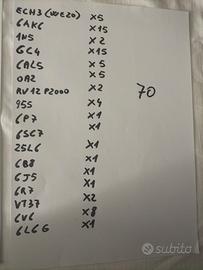 ECH3 (WE20) x5
6AK6 x15
1N5 x2
6C4 x15
6AL5 x5
0A2 x5
RV12P2000 x2
955 x4
6P7 x1
6SC7 x1
25L6 x1
6B8 x1
6J5 x1
6R7 x1
VT37 x2
6V6 x8
6L6G x1
70
subito